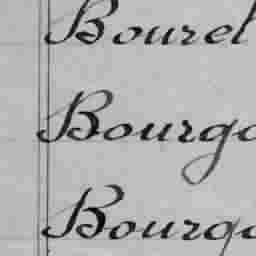 Bourel
Bourgo
Bourgo